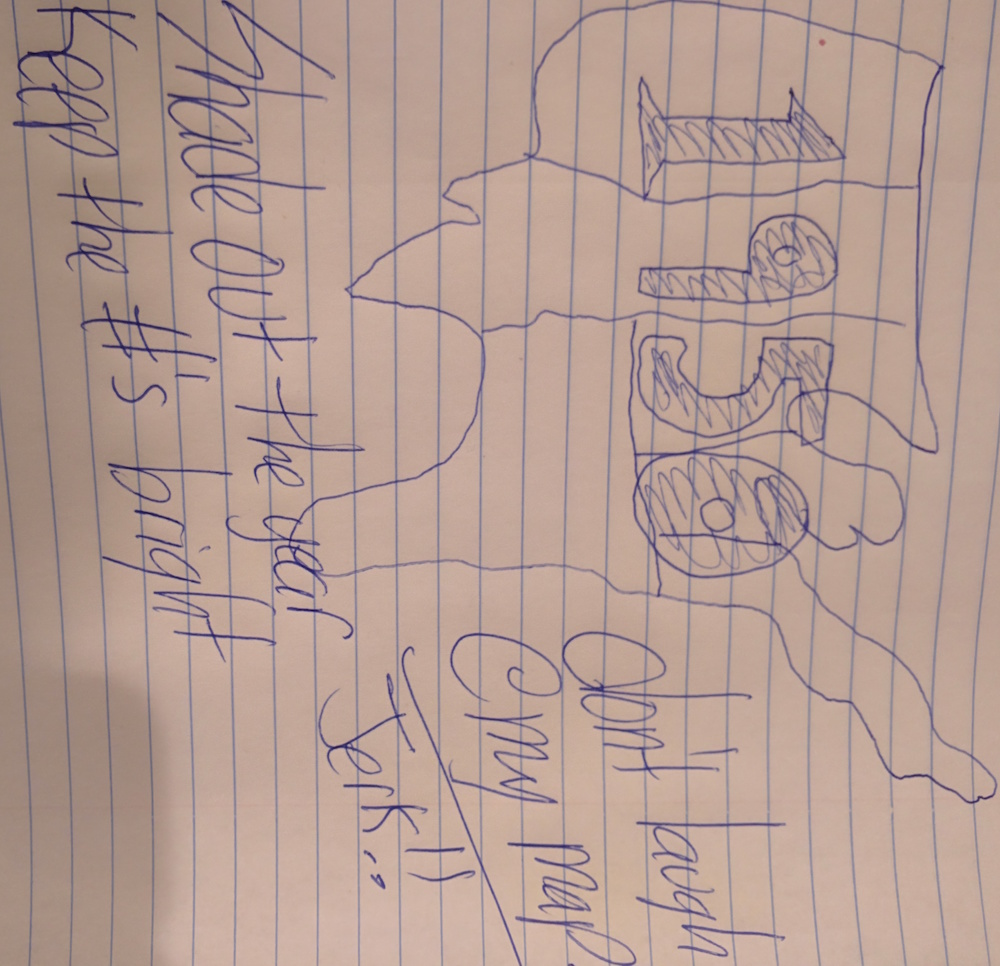 1956
Don't laugh
@ my map
Jerk!!
Shade out the year
Keep the #'s bright